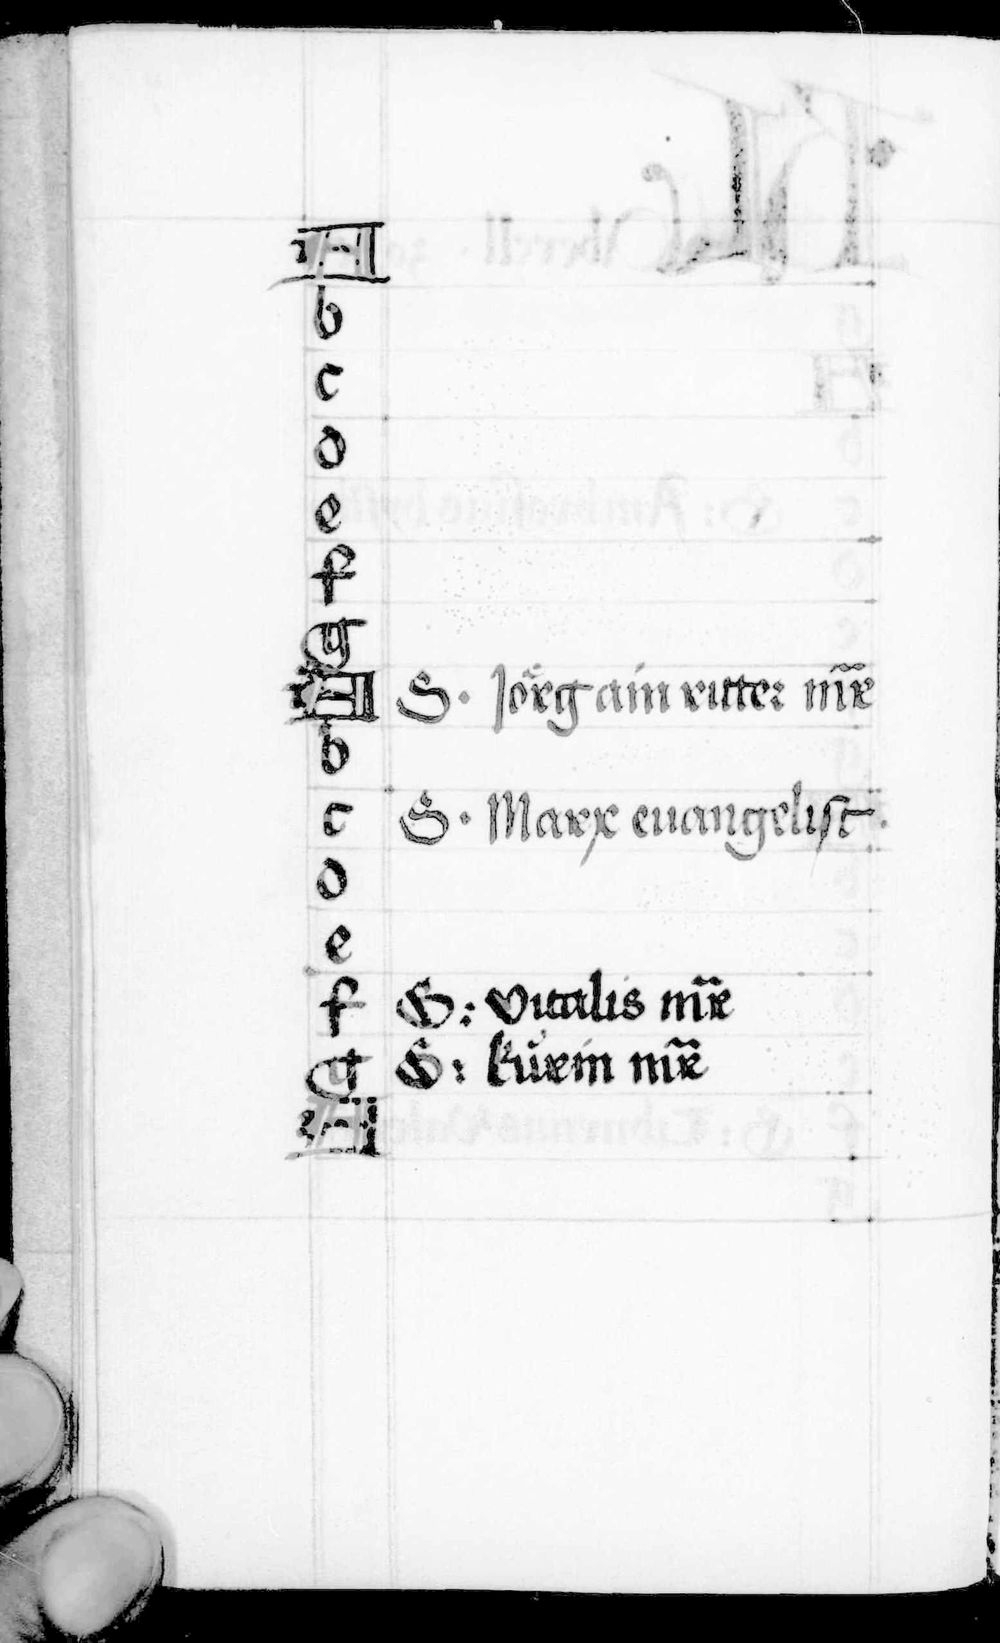 A
b
c
d
e
f
g
A S. Jörg ain ritter mr̃
b
c S. Marx euangelist.
d
e
f S: Vitalis mr̃
g S: kürin mr̃
A